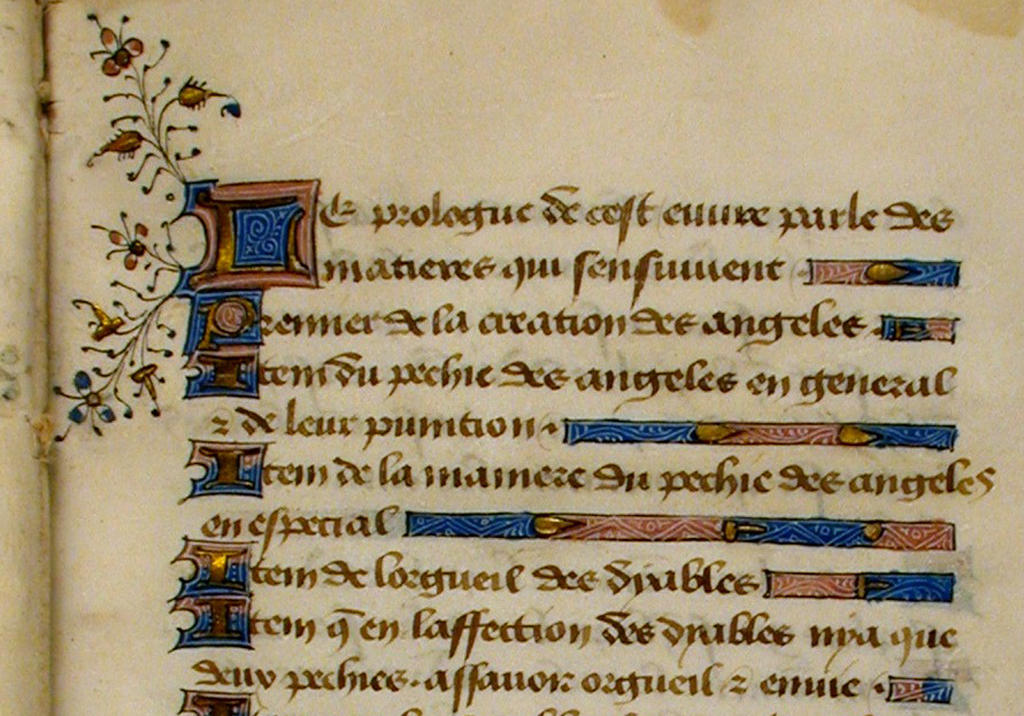 Le prologue de cest euure parle des
matieres qui sensuiuent
Premier de la creation des angeles
Item du pechie des angeles en general
⁊ de leur punition
Item de la maniere du pechie des angeles
en especial
Item de lorgueil des dyables
Item q̄ en laffection des dyables nya que
deux pechies. assauoir orgueil ⁊ enuie